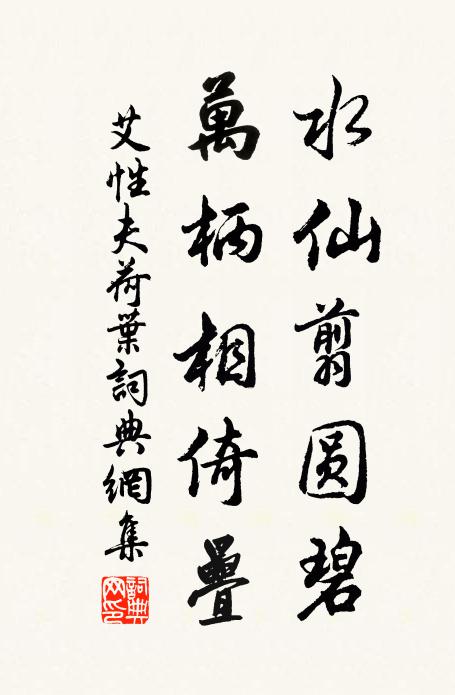 水仙剪圆碧
萬柄相倚疊
艾性夫荷葉詞典網集
詞典网印